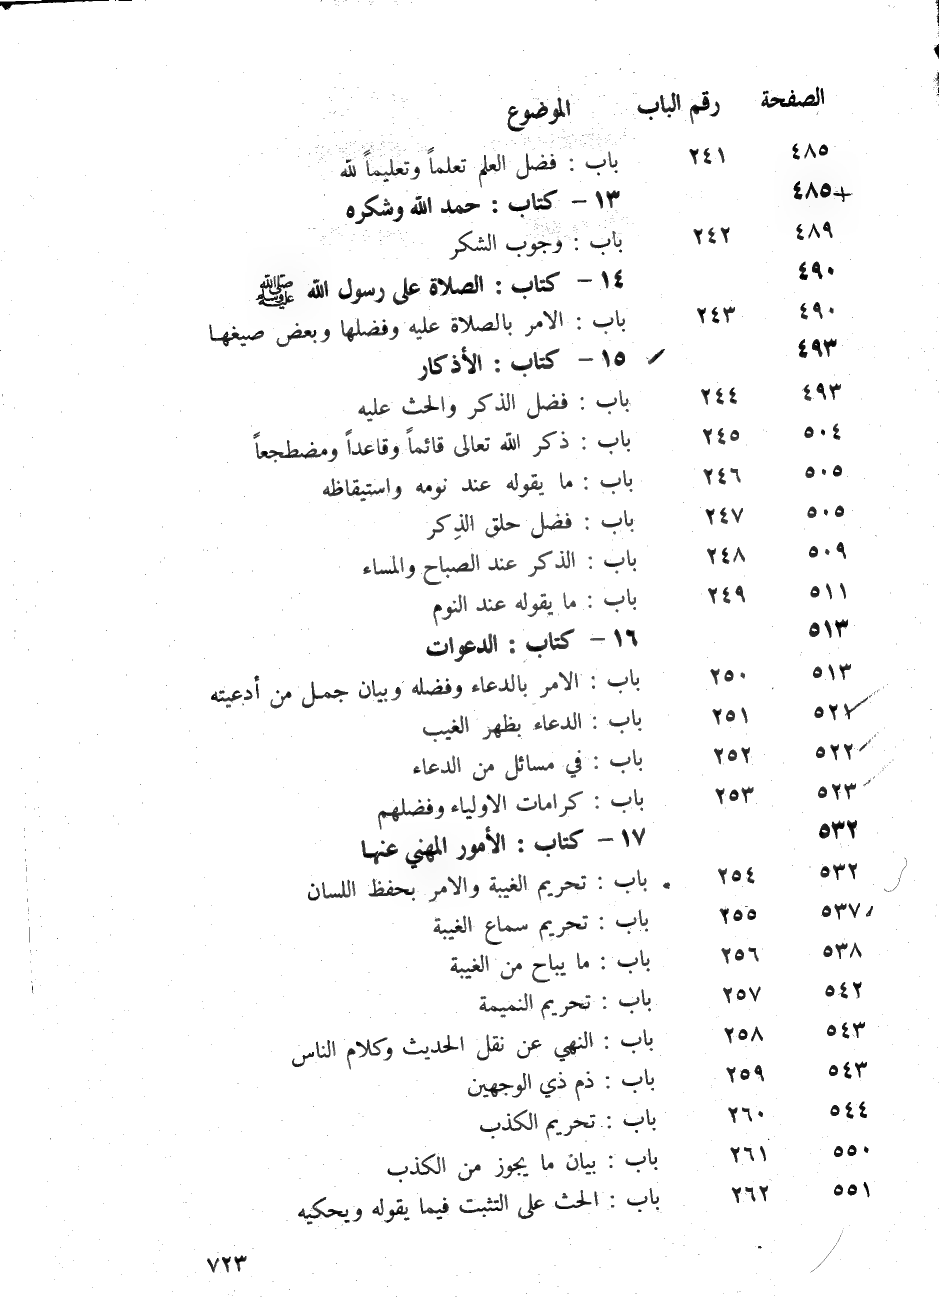 الصفحة رقم الباب الموضوع
٤٨٥ ٢٤١ باب : فضل العلم تعلماً وتعليماً لله
٤٨٥ ١٣ - كتاب : حمد الله وشكره
٤٨٩ ٢٤٢ باب : وجوب الشكر
٤٩٠ ١٤ - كتاب : الصلاة على رسول الله ﷺ
٤٩٠ ٢٤٣ باب : الامر بالصلاة عليه وفضلها وبعض صيغها
٤٩٣ ١٥ - كتاب : الأذكار
٤٩٣ ٢٤٤ باب : فضل الذكر والحث عليه
٥٠٤ ٢٤٥ باب : ذكر الله تعالى قائماً وقاعداً ومضطجعاً
٥٠٥ ٢٤٦ باب : ما يقوله عند نومه واستيقاظه
٥٠٥ ٢٤٧ باب : فضل حلق الذِكر
٥٠٩ ٢٤٨ باب : الذكر عند الصباح والمساء
٥١١ ٢٤٩ باب : ما يقوله عند النوم
٥١٣ ١٦ - كتاب : الدعوات
٥١٣ ٢٥٠ باب : الامر بالدعاء وفضله وبيان جمل من أدعيته
٥٢١ ٢٥١ باب : الدعاء بظهر الغيب
٥٢٢ ٢٥٢ باب : في مسائل من الدعاء
٥٢٣ ٢٥٣ باب : كرامات الاولياء وفضلهم
٥٣٢ ١٧ - كتاب : الأمور المهني عنها
٥٣٢ ٢٥٤ باب : تحريم الغيبة والامر بحفظ اللسان
٥٣٧ ٢٥٥ باب : تحريم سماع الغيبة
٥٣٨ ٢٥٦ باب : ما يباح من الغيبة
٥٤٢ ٢٥٧ باب : تحريم النميمة
٥٤٣ ٢٥٨ باب : النهي عن نقل الحديث وكلام الناس
٥٤٣ ٢٥٩ باب : ذم ذي الوجهين
٥٤٤ ٢٦٠ باب : تحريم الكذب
٥٥٠ ٢٦١ باب : بيان ما يجوز من الكذب
٥٥١ ٢٦٢ باب : الحث على التثبت فيما يقوله ويحكيه
٧٢٣